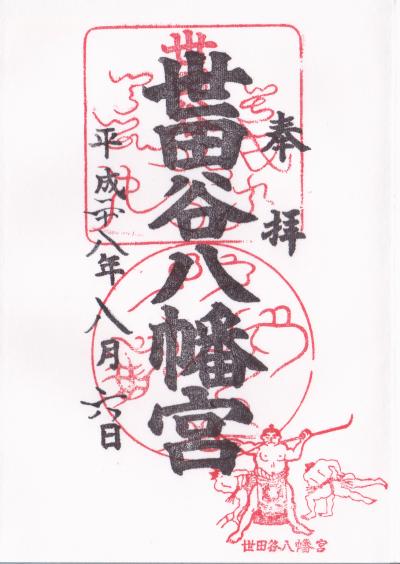 奉拝
世田谷八幡宮
平成廿八年八月六日
世田谷八幡宮